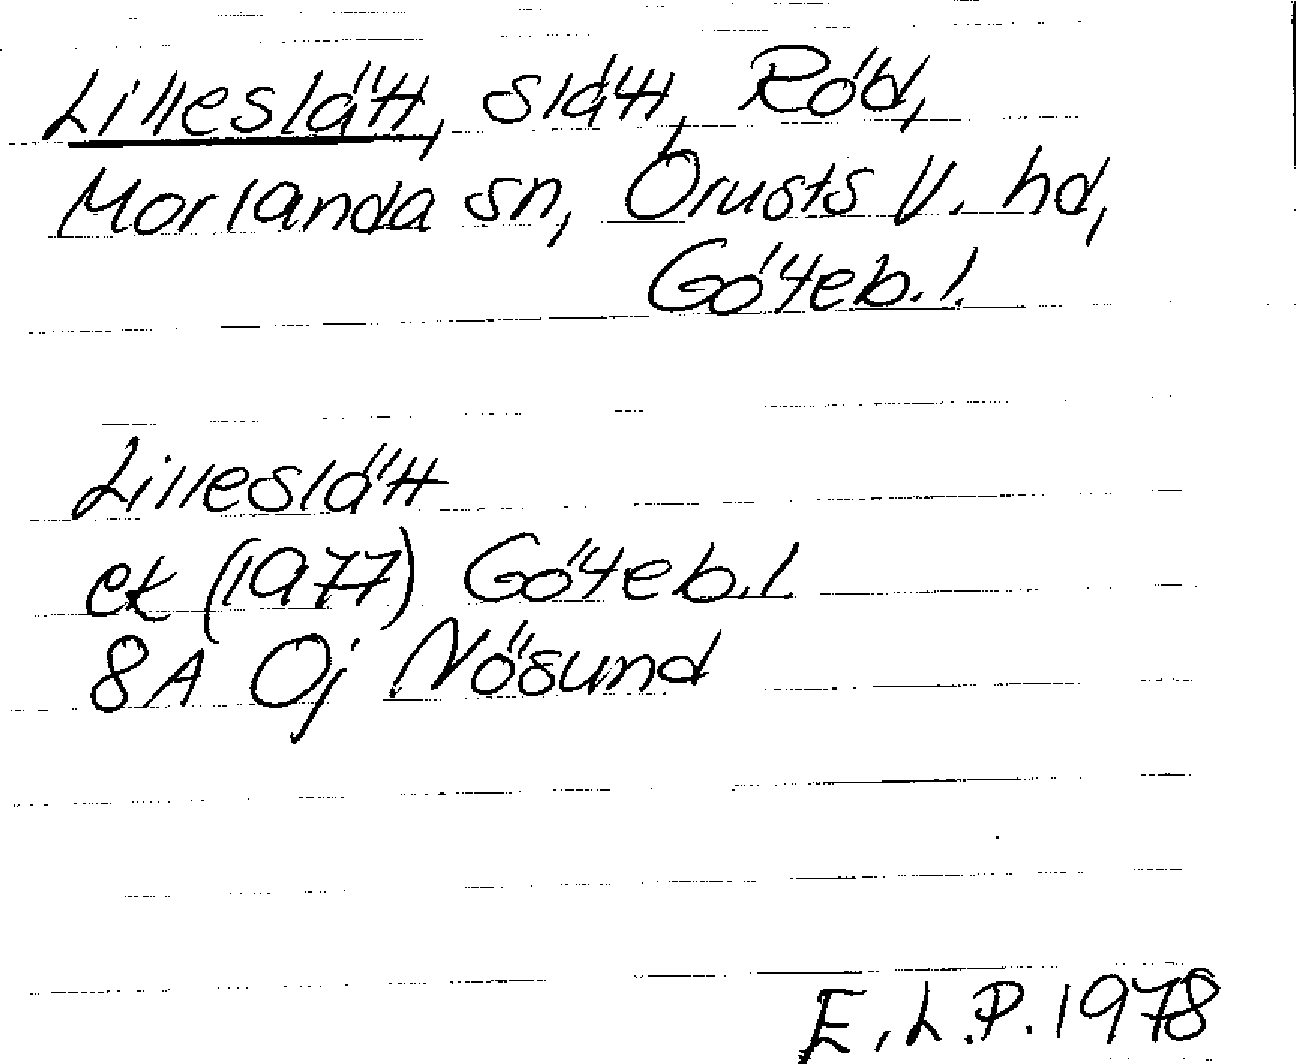 Lilleslätt, slätt, Röd,
Morlanda sn, Orusts V. hd,
Göteb. l.
Lilleslätt
ek (1977) Göteb. l.
8A 0j Nösund
E.L.P. 1978